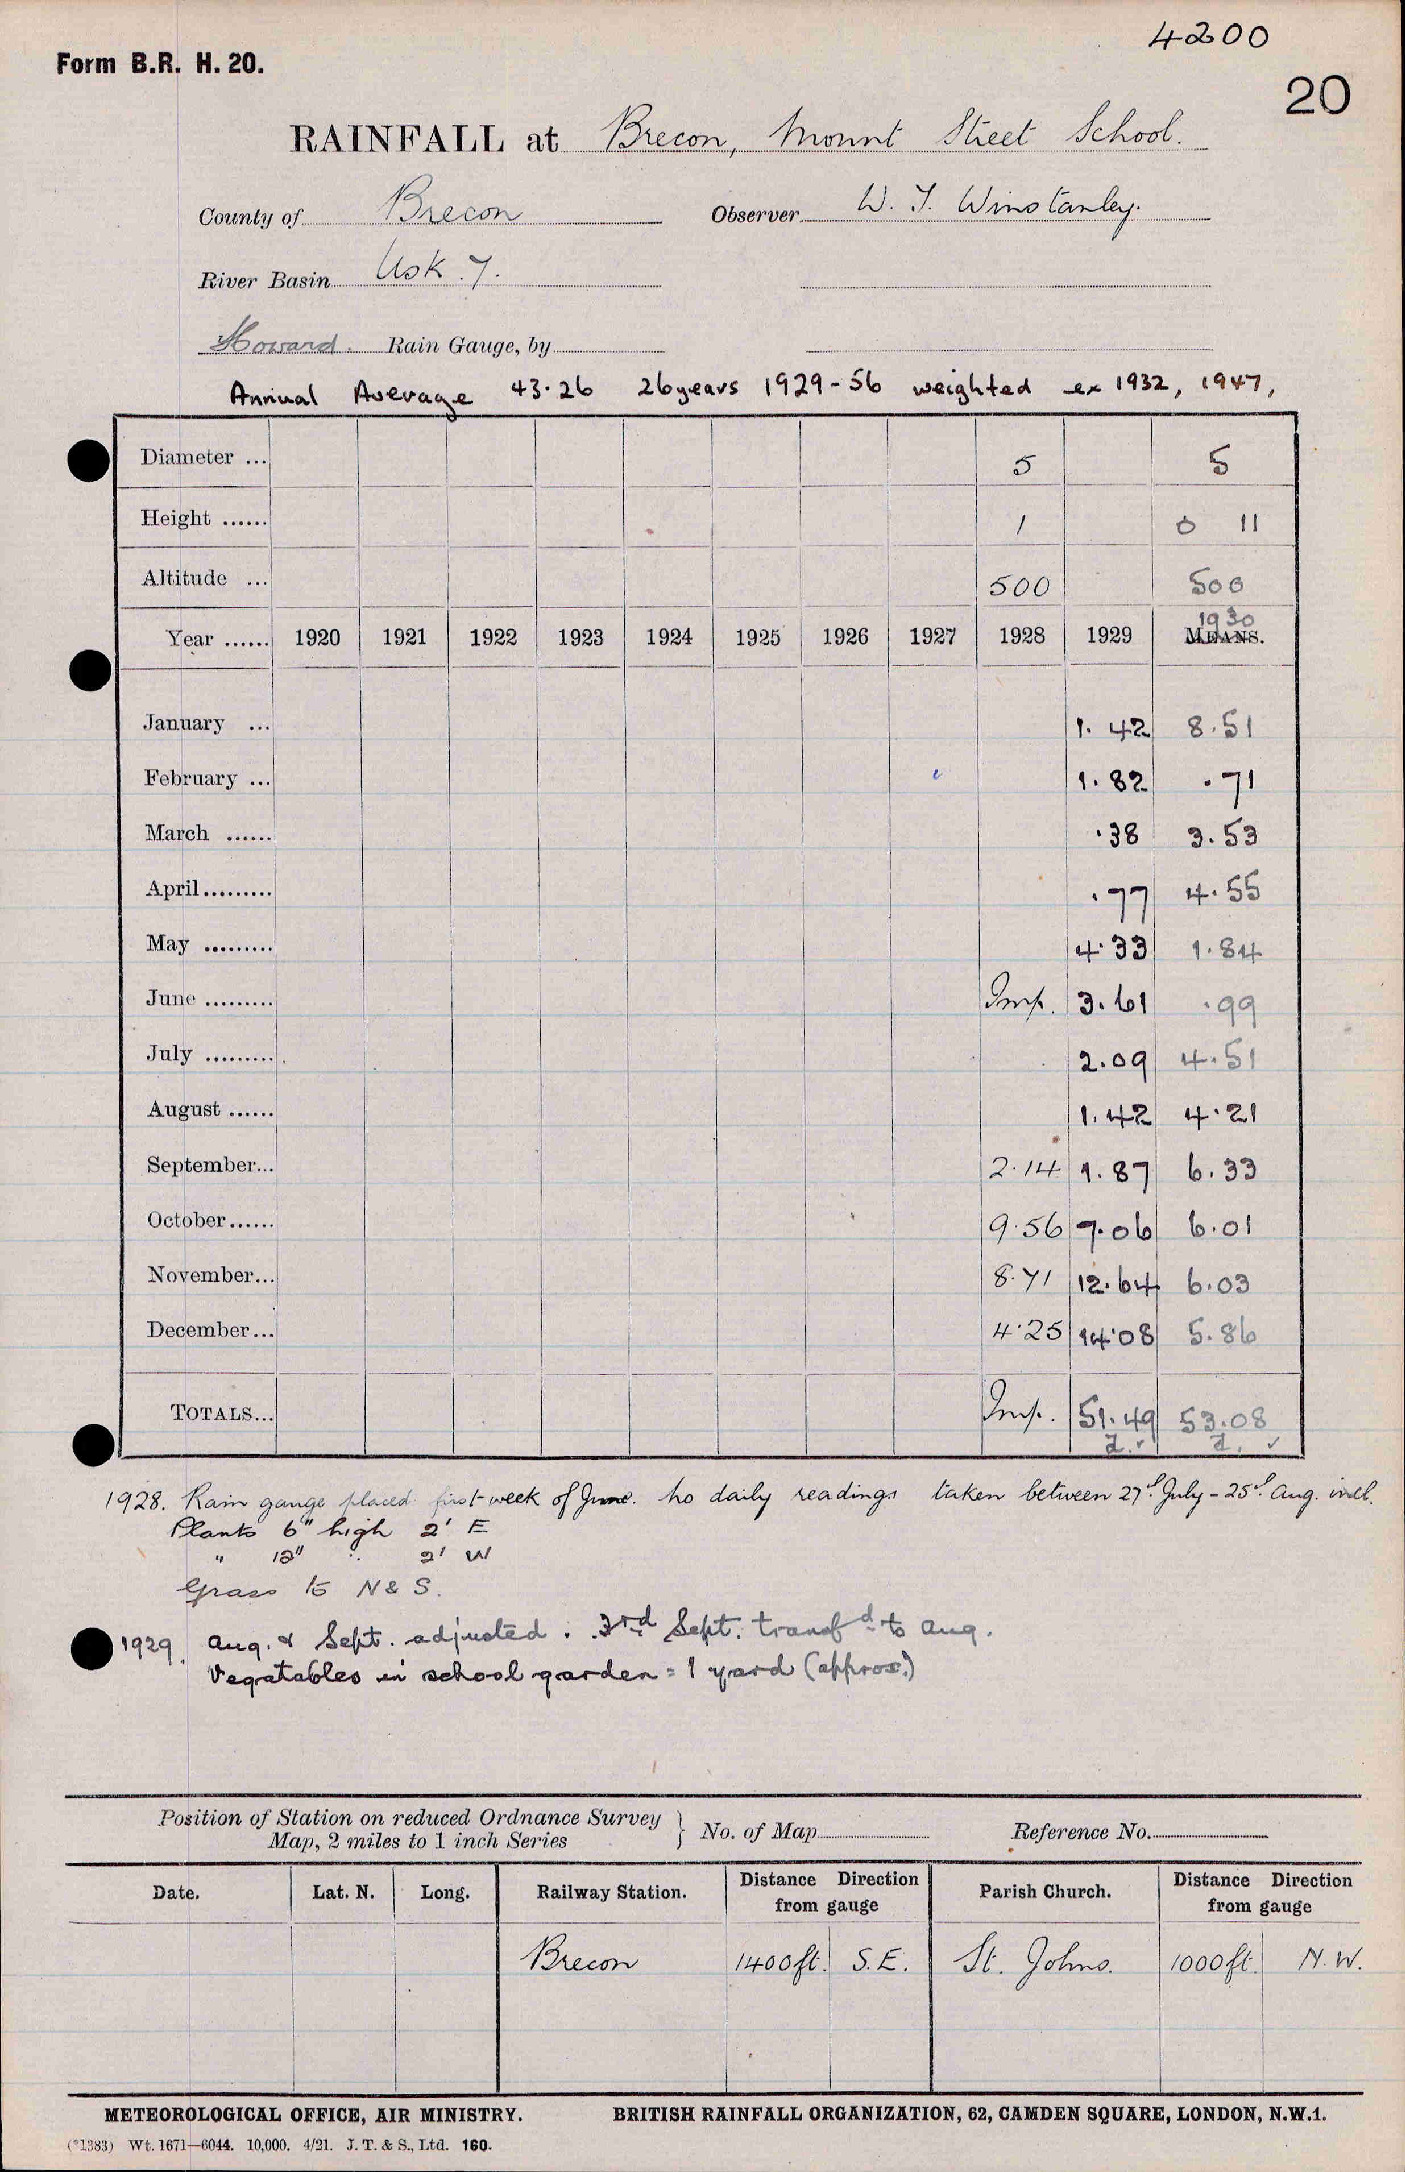 4200
Form B.R. H. 20.
20
RAINFALL at Brecon, Mount Street School.
County of Brecon Observer W. T. Winstanley.
River Basin Usk 7.
Howard. Rain Gauge, by
Annual Average 43.26 26 years 1929-56 weighted ex 1932, 1947,
Diameter ... 5 5
Height ...... 1 0 11
Altitude ... 500 500
1930
Year ...... 1920 1921 1922 1923 1924 1925 1926 1927 1928 1929 MEANS.
January ... 1.42 8.51
February ... 1.82 .71
March ...... .38 3.53
April ......... .77 4.55
May ......... 4.33 1.84
June ......... Imp. 3.61 .99
July ......... 2.09 4.51
August ...... 1.42 4.21
September... 2.14 1.87 6.33
October...... 9.56 7.06 6.01
November... 8.71 12.64 6.03
December... 4.25 14.08 5.86
TOTALS... Imp. 51.49 53.08
1928. Rain gauge placed first week of June. No daily readings taken between 27th July - 25th Aug. incl.
Plants 6" high 2' E
" 12" " 2' W
Grass to N & S.
1929. Aug. & Sept. adjusted. 3rd Sept. transfd to Aug.
Vegetables in school garden = 1 yard (approx.)
Position of Station on reduced Ordnance Survey
Map, 2 miles to 1 inch Series } No. of Map Reference No.
Date. Lat. N. Long. Railway Station. Distance Direction from gauge Parish Church. Distance Direction from gauge
Brecon 1400 ft. S.E. St. Johns. 1000 ft. N.W.
METEOROLOGICAL OFFICE, AIR MINISTRY. BRITISH RAINFALL ORGANIZATION, 62, CAMDEN SQUARE, LONDON, N.W.1.
(*1383) Wt. 1671—6044. 10,000. 4/21. J. T. & S., Ltd. 160.